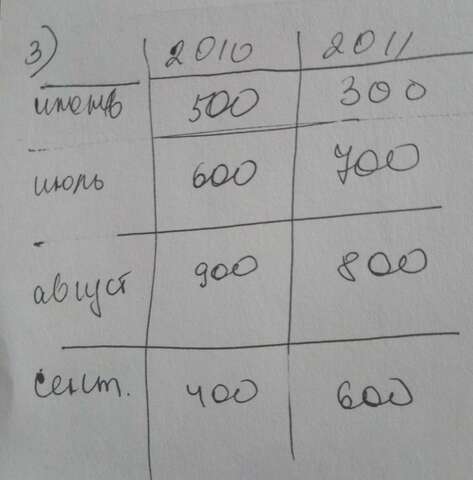 3) 2010 2011
июнь 500 300
июль 600 700
август 900 800
сент. 400 600